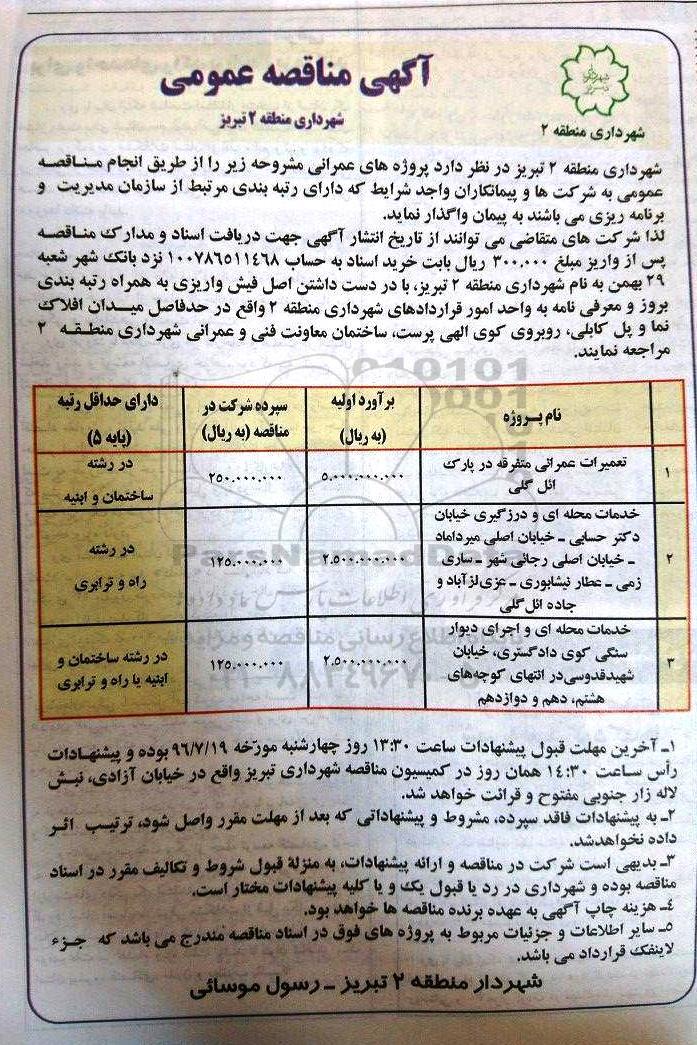 آگهی مناقصه عمومی
شهرداری منطقه ۲ تبریز
شهرداری منطقه ۲
شهرداری منطقه ۲ تبریز در نظر دارد پروژه های عمرانی مشروحه زیر را از طریق انجام مـنـاقـصـه
عمومی به شرکت ها و پیمانکاران واجد شرایط که دارای رتبه بندی مرتبط از سازمان مدیریت و
برنامه ریزی می باشند به پیمان واگذار نماید.
لذا شرکت های متقاضی می توانند از تاریخ انتشار آگهی جهت دریافت اسناد و مدارک مناقـصـه
پس از واریز مبلغ ۳۰۰.۰۰۰ ریال بابت خرید اسناد به حساب ۱۰۰۷۸۶۵۱۱۴۶۸ نزد بانک شهر شعبه
۲۹ بهمن به نام شهرداری منطقه ۲ تبریز، با در دست داشتن اصل فیش واریزی به همراه رتبه بندی
بروز و معرفی نامه به واحد امور قراردادهای شهرداری منطقه ۲ واقع در حدفاصل میـدان افلاک
نما و پل کابلی، روبروی کوی الهی پرست، ساختمان معاونت فنی و عمرانی شهرداری منطـقـه ۲
مراجعه نمایند.
نام پـروژه
برآورد اولیه
(به ریال)
سپرده شرکت در
مناقصه (به ریال)
دارای حداقل رتبه
(پایه ۵)
۱
تعمیرات عمرانی متفرقه در پارک
ائل گلی
۵.۰۰۰.۰۰۰.۰۰۰
۲۵۰.۰۰۰.۰۰۰
در رشته
ساختمان و ابنیه
۲
خدمات محله ای و درزگیری خیابان
دکتر حسابی ـ خیابان اصلی میرداماد
ـ خیابان اصلی رجائی شهر ـ ساری
زمی ـ عطار نیشابوری ـ عزی‌لزآباد و
جاده ائل‌گلی
۲.۵۰۰.۰۰۰.۰۰۰
۱۲۵.۰۰۰.۰۰۰
در رشته
راه و ترابری
۳
خدمات محله ای و اجرای دیوار
سنگی کوی دادگستری، خیابان
شهیدقدوسی‌در انتهای کوچه‌های
هشتم، دهم و دوازدهم
۲.۵۰۰.۰۰۰.۰۰۰
۱۲۵.۰۰۰.۰۰۰
در رشته ساختمان و
ابنیه یا راه و ترابری
ParsNamadData
۱ـ آخرین مهلت قبول پیشنهادات ساعت ۱۳:۳۰ روز چهارشنبه مورّخه ۹۶/۷/۱۹ بوده و پیشنهـادات
رأس ساعت ۱۴:۳۰ همان روز در کمیسیون مناقصه شهرداری تبریز واقع در خیابان آزادی، نبـش
لاله زار جنوبی مفتوح و قرائت خواهد شد.
۲ـ به پیشنهادات فاقد سپرده، مشروط و پیشنهاداتی که بعد از مهلت مقرر واصل شود، ترتیـب اثـر
داده نخواهدشد.
۳ـ بدیهی است شرکت در مناقصه و ارائه پیشنهادات، به منزلهٔ قبول شروط و تکالیف مقرر در اسناد
مناقصه بوده و شهرداری در رد یا قبول یک و یا کلیه پیشنهادات مختار است.
۴ـ هزینه چاپ آگهی به عهده برنده مناقصه ها خواهد بود.
۵ـ سایر اطلاعات و جزئیات مربوط به پروژه های فوق در اسناد مناقصه مندرج می باشد که جـزء
لاینفک قرارداد می باشد.
شهردار منطقه ۲ تبریز ـ رسول موسائی